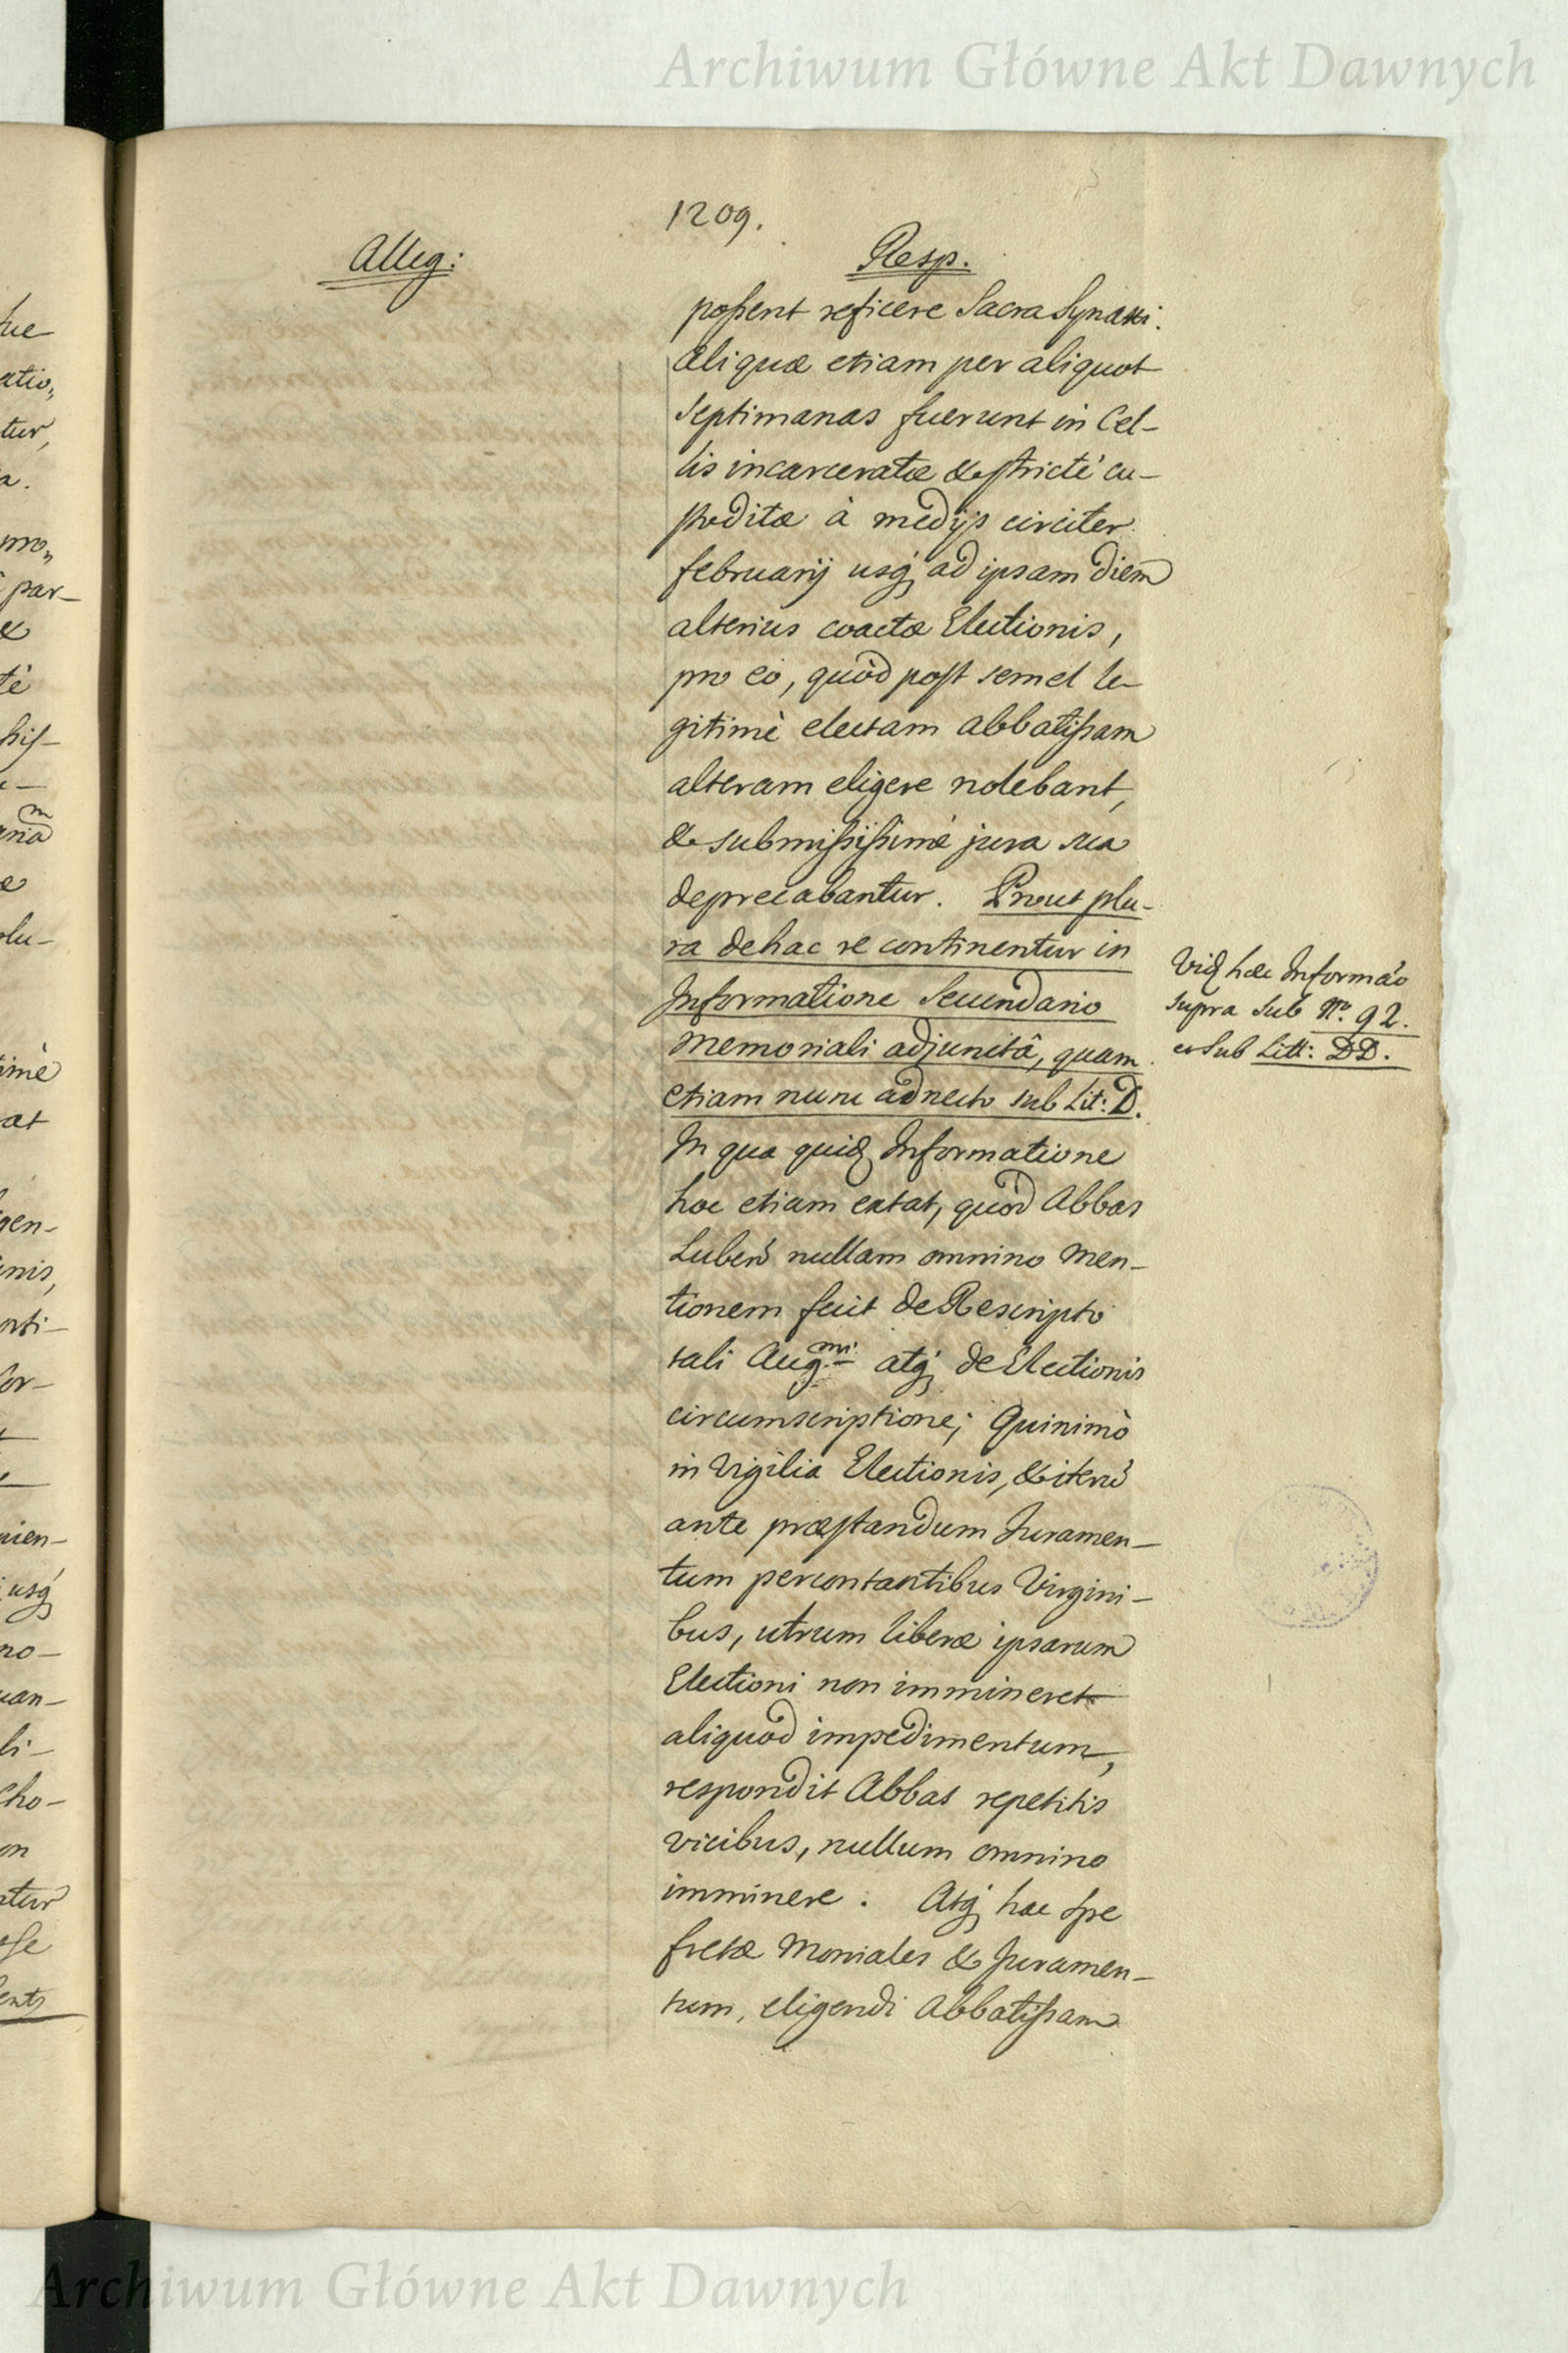 Archiwum Główne Akt Dawnych
1209.
Alleg:
Resp.
possent reficere Sacra Synaxi.
Aliquæ etiam per aliquot
septimanas fuerunt in Cel-
lis incarceratæ & strictè cu-
stoditæ à medijs circiter
februarij usq; ad ipsam diem
alterius coactæ Electionis,
pro eo, quòd post semel le-
gitimè electam abbatissam
alteram eligere nolebant,
& submississimè jura sua
deprecabantur. Prout plu-
ra de hac re continentur in
Informatione Secundario
Memoriali adjunctâ, quam
etiam nunc adnecto sub Lit: D.
In qua quid Informatione
hoc etiam extat, quòd Abbas
Luben̄ nullam omnino men-
tionem fecit de Rescripto
tali Aug.mi atq; de Electionis
circumscriptione; Quinimò
in Vigilia Electionis, & iterū
ante præstandum Juramen-
tum percontantibus Virgini-
bus, utrum liberæ ipsarum
Electioni non immineret
aliquod impedimentum,
respondit Abbas repetitis
vicibus, nullum omnino
imminere. Atq; hac spe
fretæ Moniales & Juramen-
tum, eligendi Abbatissam
Vid hæc Informáo
supra sub No. 92.
et sub Litt: DD.
Archiwum Główne Akt Dawnych